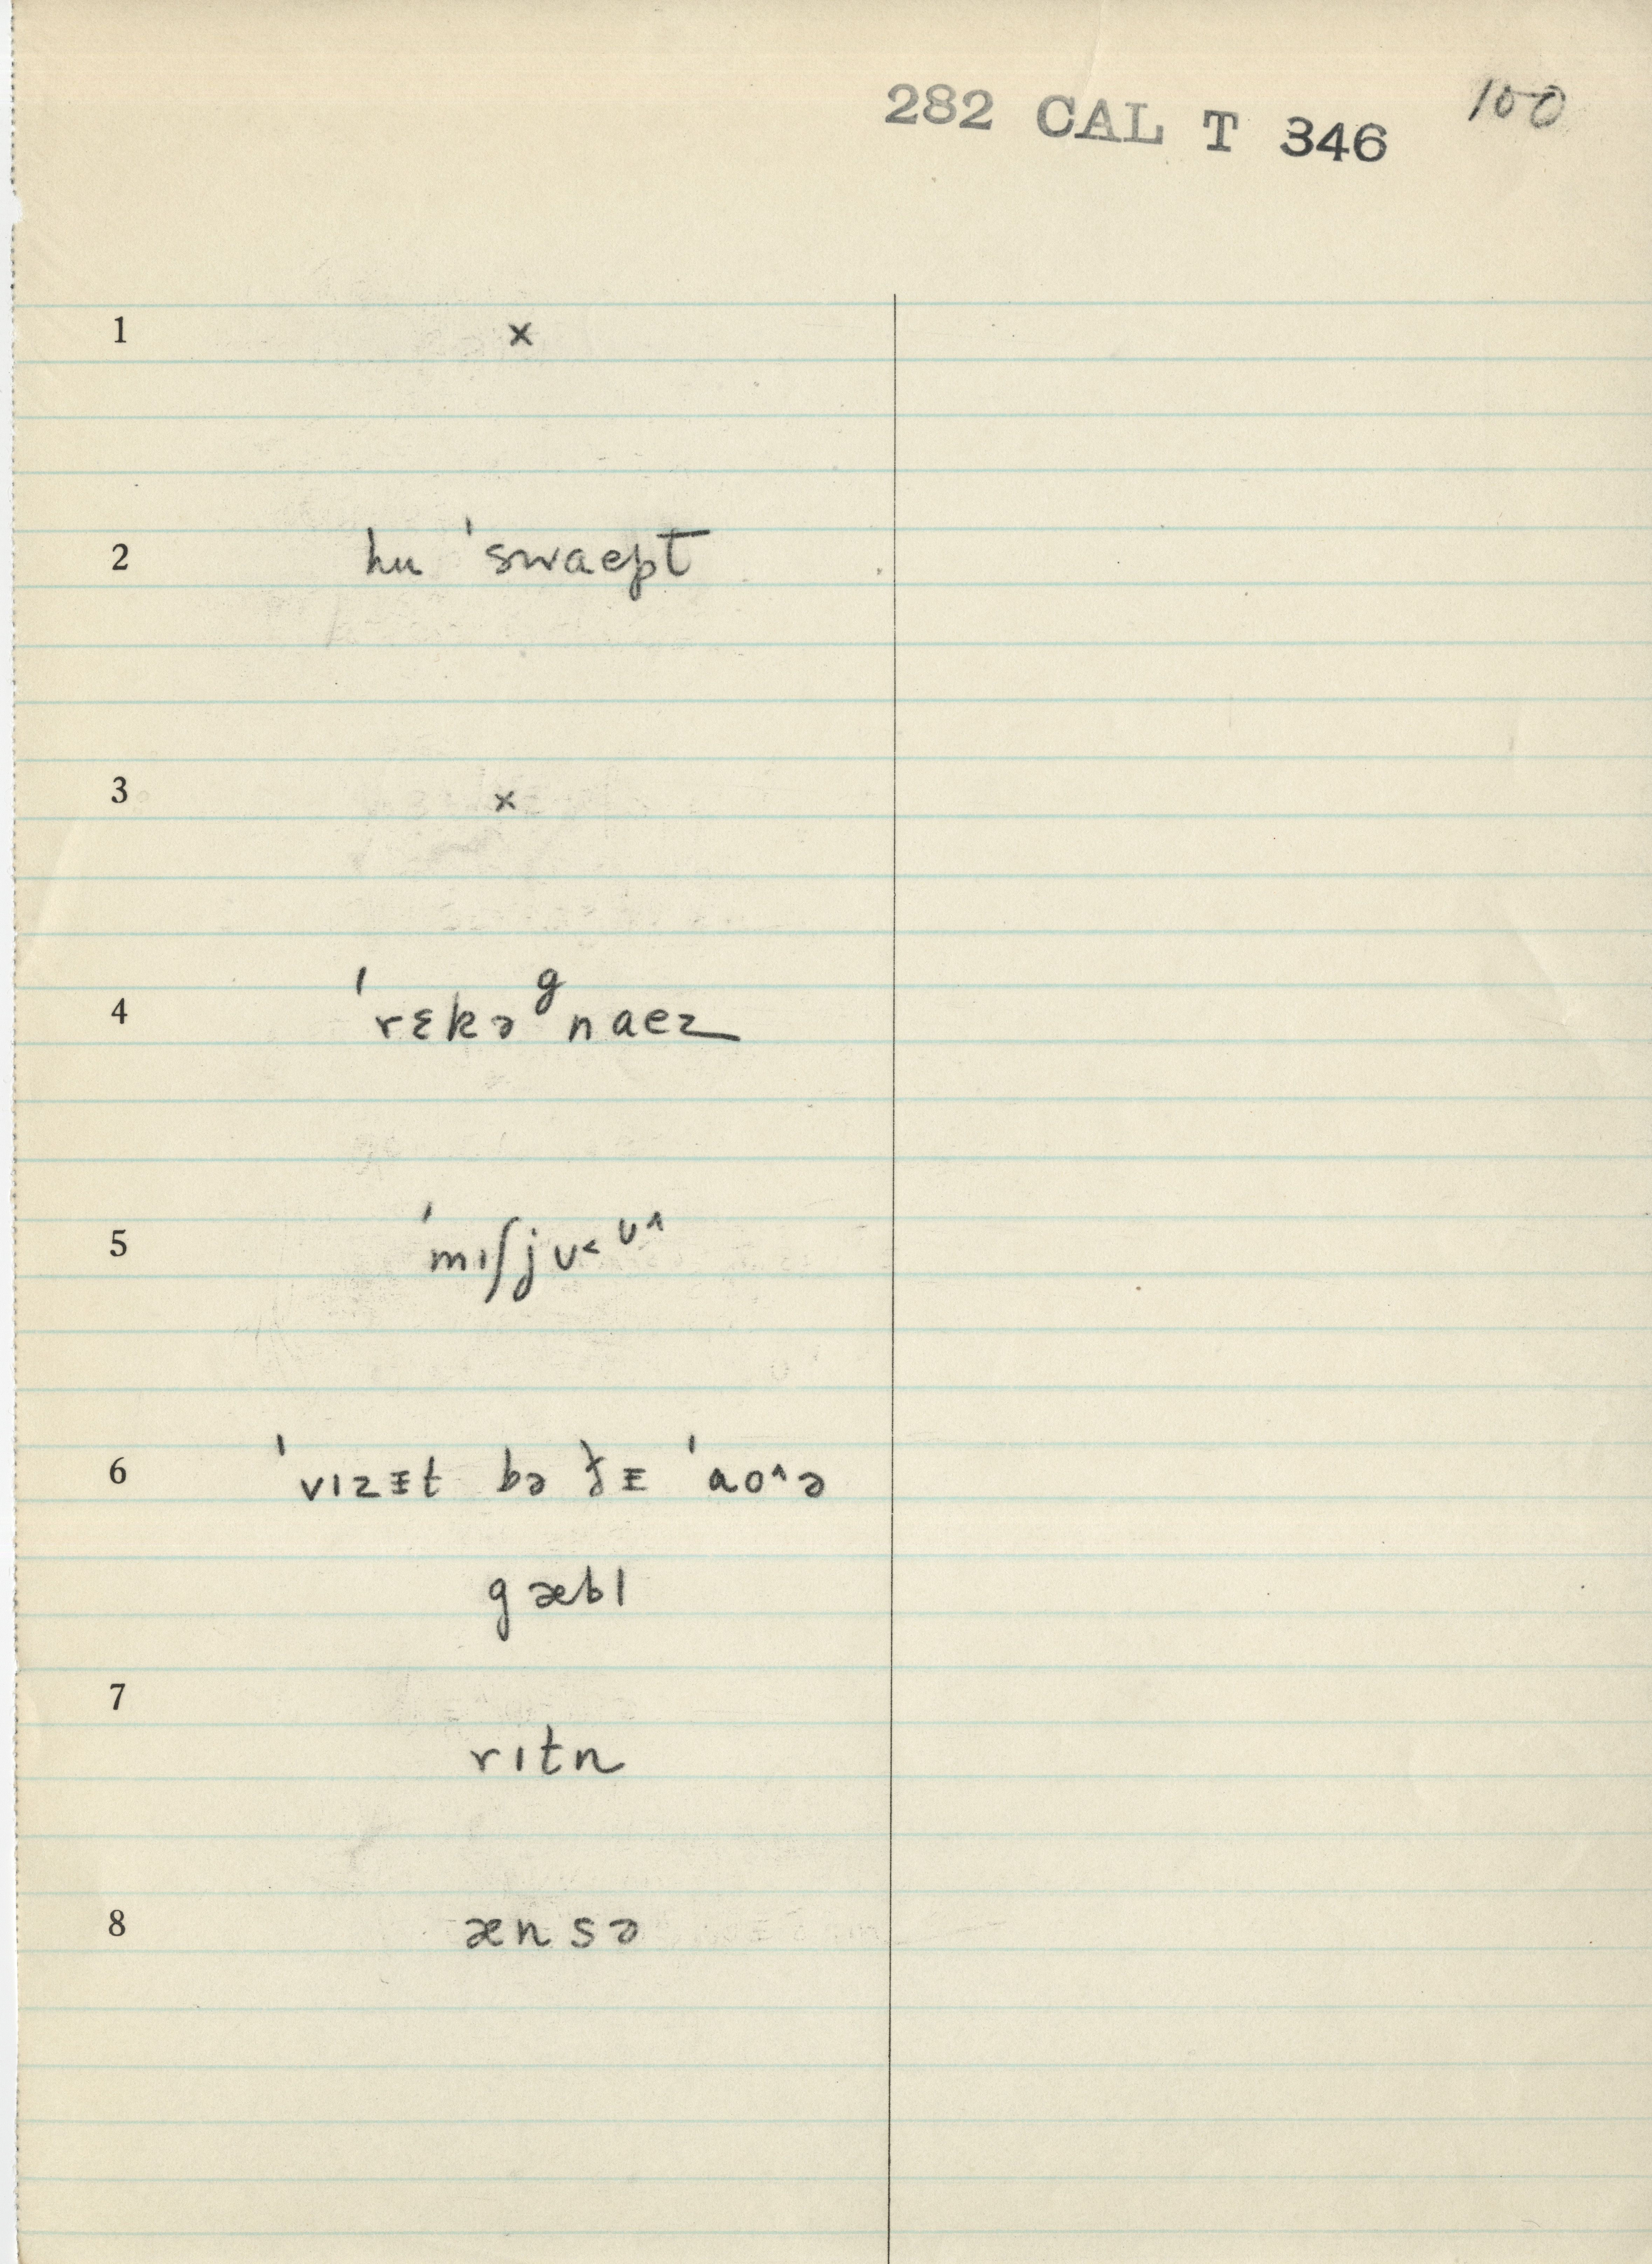 282 CAL T 346 100
1 x
2 hu ˈswaept
3 x
4 ˈrɛkəᵍnaez
5 ˈmɪʃjʊ˂ ᶷ^
6 ˈvɪzᵻt bə ɟɪ ˈao^ə
gæbl
7 rɪtn
8 ænsə